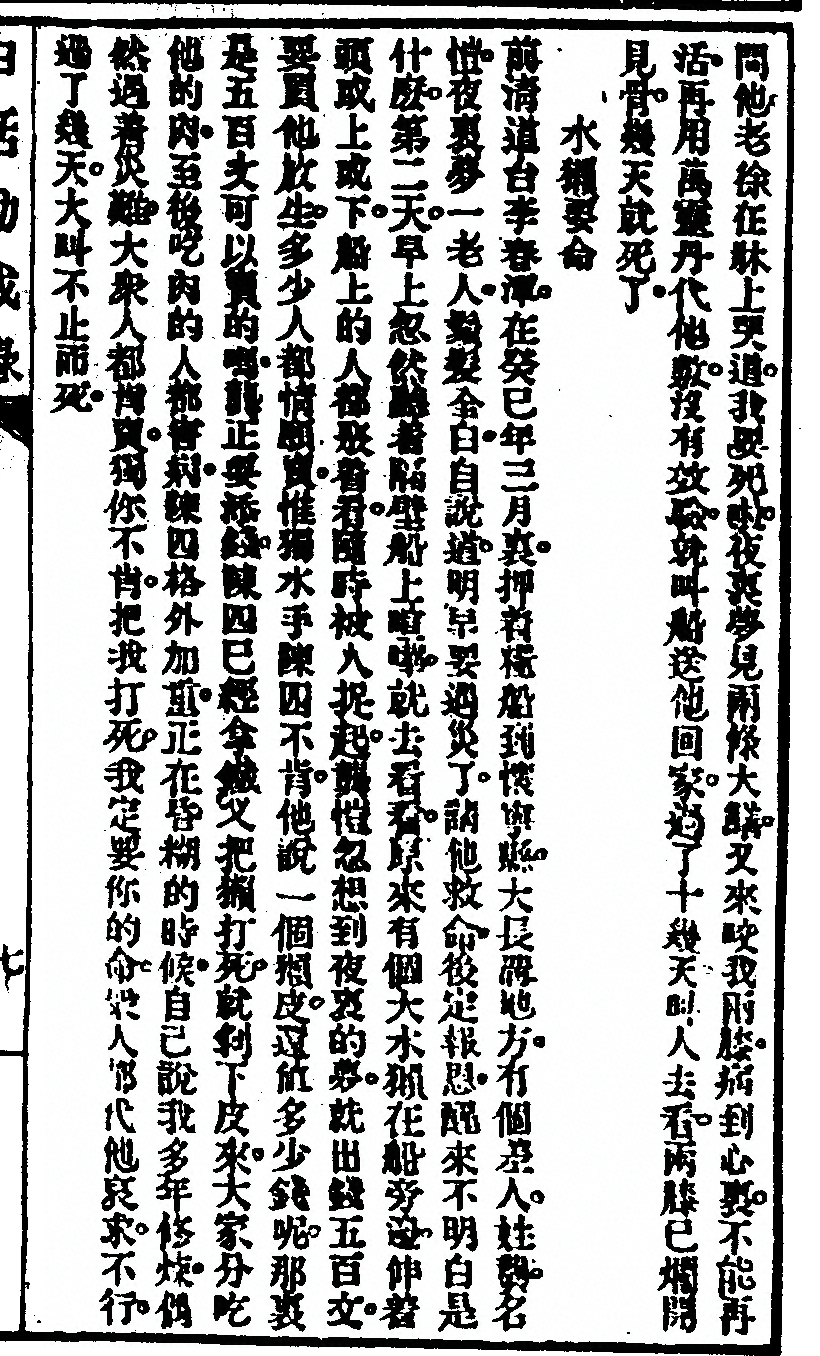 問他老徐在牀上哭道我要死啦夜裏夢見兩條大蟒又來咬我兩膝病到心裏不能再
活再用萬靈丹代他敷沒有效驗就叫船送他回家過了十幾天叫人去看兩膝已爛開
見骨幾天就死了
水獺要命
前清道台李春潭在癸巳年三月裏押着糧船到懷寧縣大長溝地方有個差人姓龔名
愷夜裏夢一老人鬚髮全白自說道明早要遇災了請他救命後定報恩醒來不明白是
什麽第二天早上忽然聽着隔壁船上喧嘩就去看看原來有個大水獺在船旁邊伸着
頭或上或下船上的人都聚着看隨時被人捉起龔愷忽想到夜裏的夢就出錢五百文
要買他放生多少人都情願賣惟獨水手陳四不肯他說一個獺皮還值多少錢呢那裏
是五百文可以賣的嗎龔正要添錢陳四已經拿鐵叉把獺打死就剝下皮來大家分吃
他的肉至後吃肉的人都害病陳四格外加重正在昏糊的時候自己說我多年修煉偶
然遇着災難大衆人都肯賣獨你不肯把我打死我定要你的命衆人都代他哀求不行
過了幾天大叫不止而死
白話勸戒錄
七